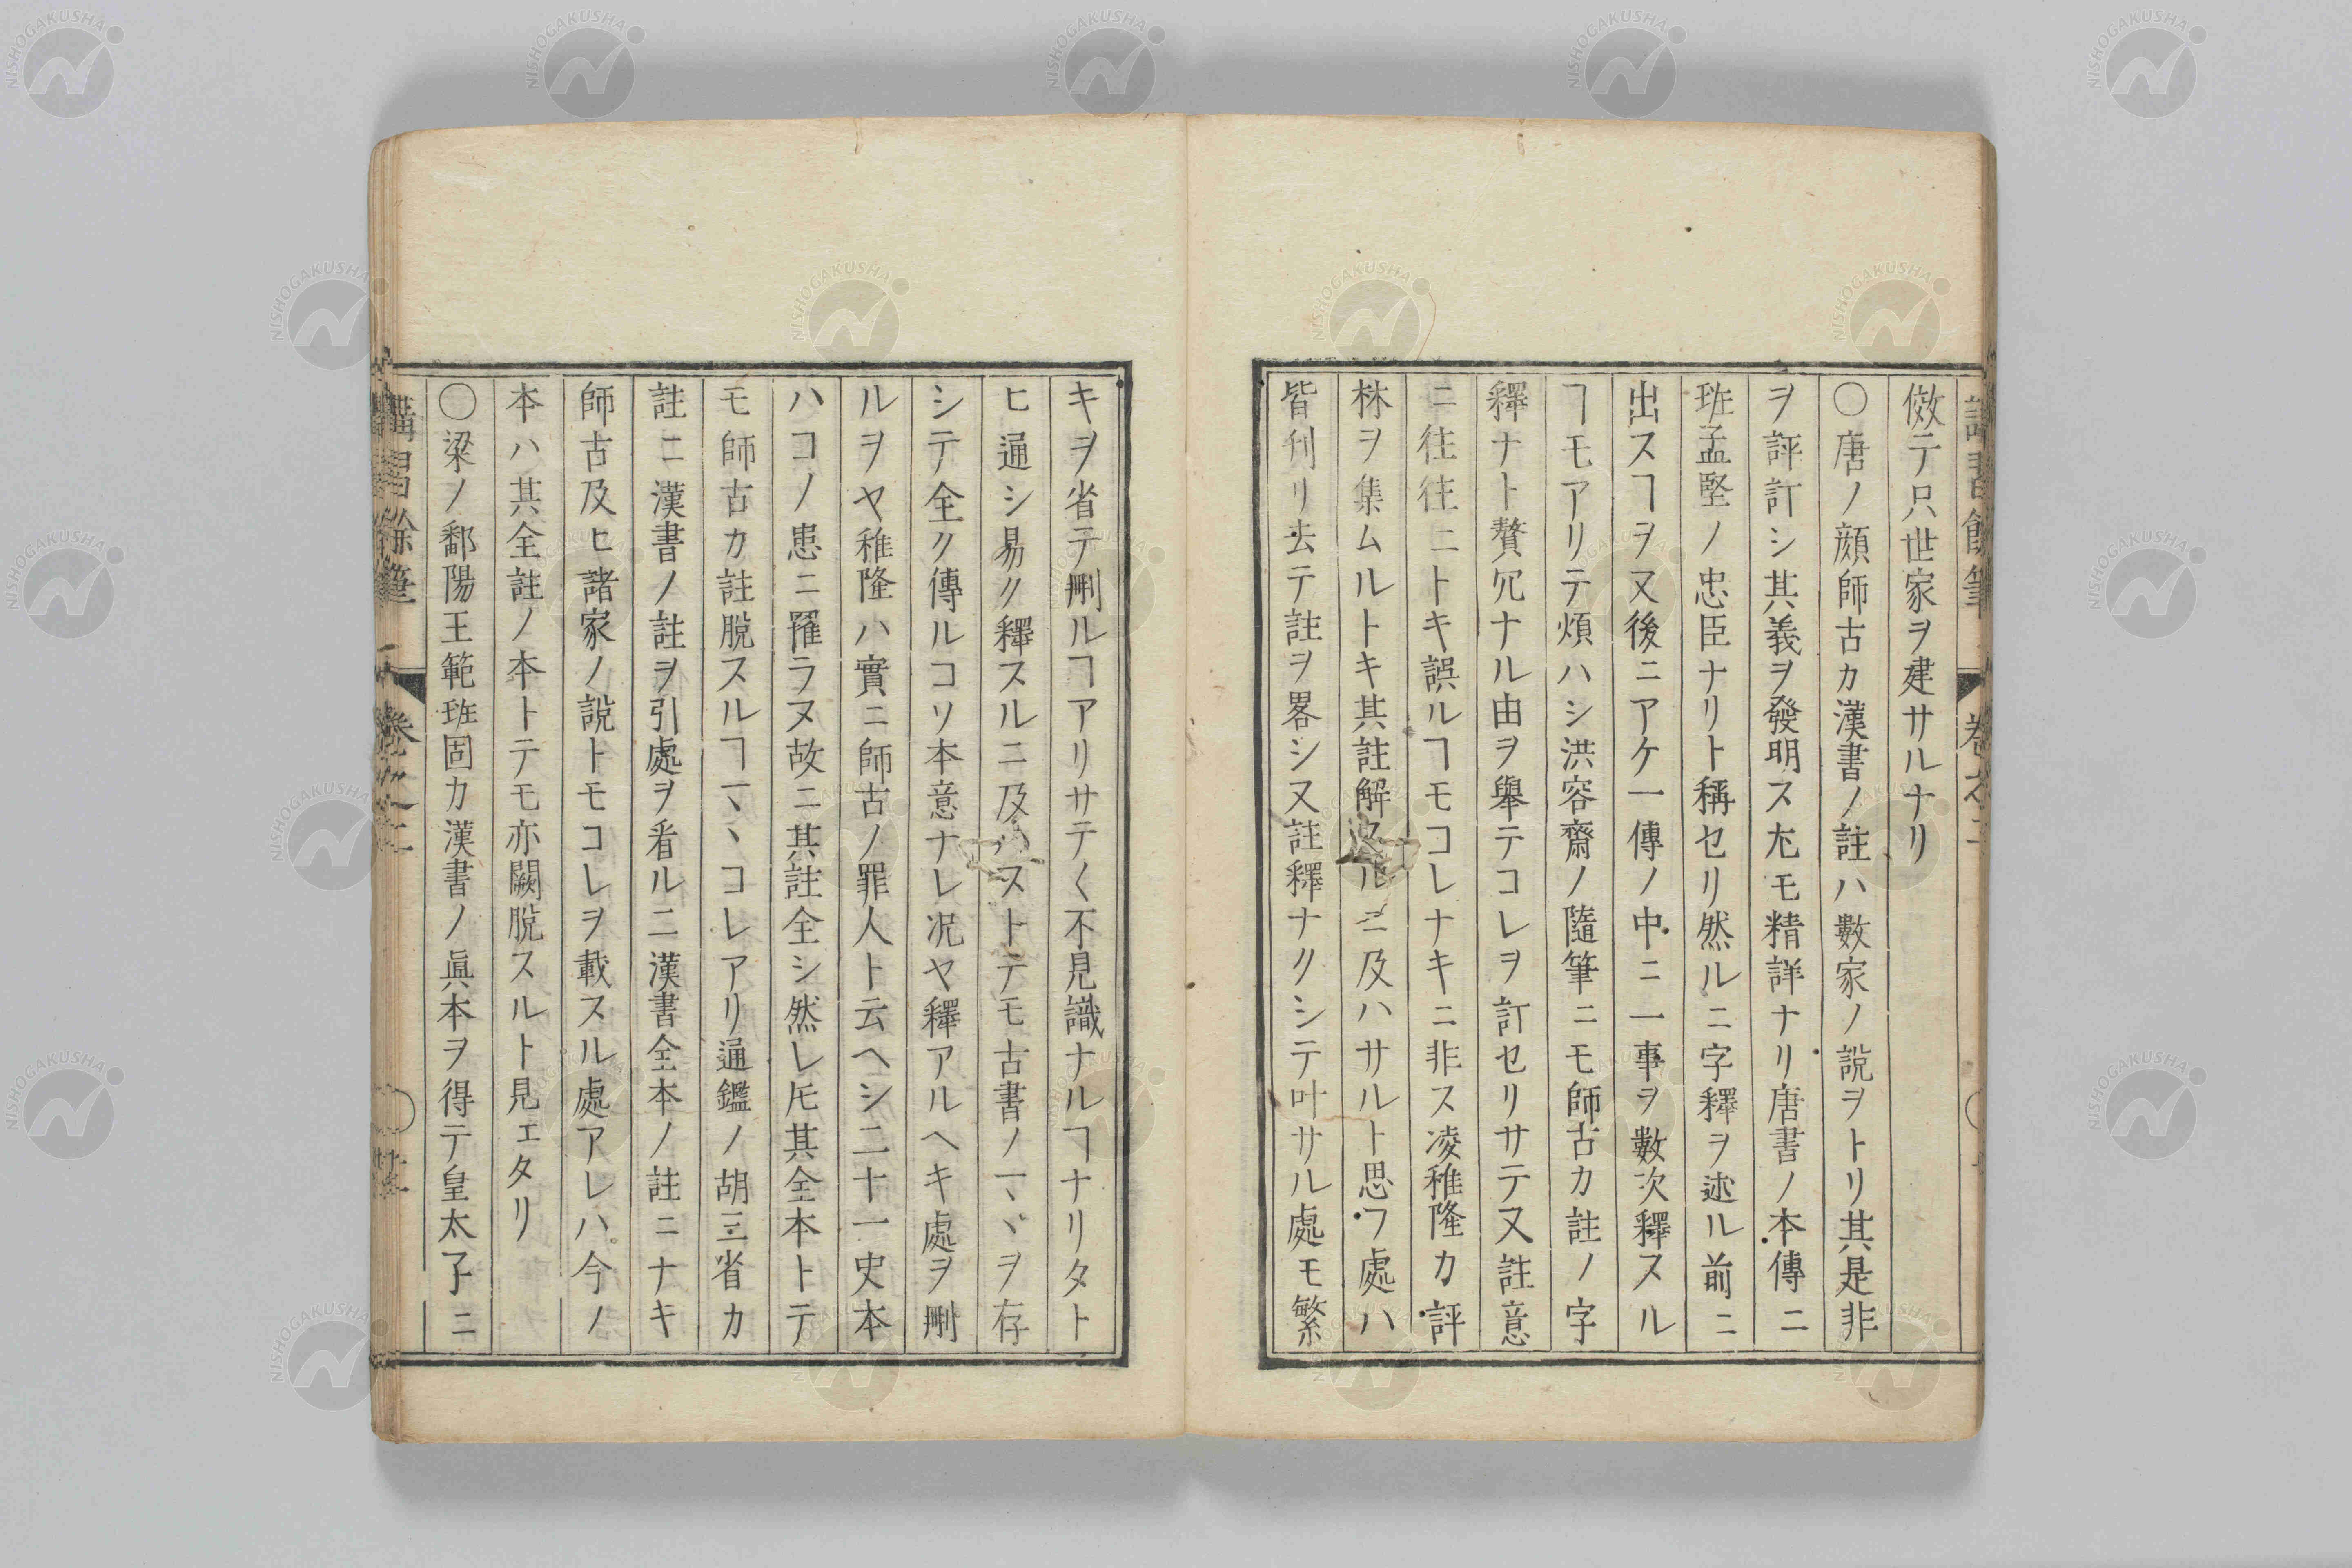 倣テ只世家ヲ建サルナリ
〇唐ノ顔師古カ漢書ノ註ハ數家ノ說ヲトリ其是非
ヲ評訂シ其義ヲ發明ス尤モ精詳ナリ唐書ノ本傳ニ
班孟堅ノ忠臣ナリト稱セリ然ルニ字釋ヲ述ル前ニ
出スヿヲ又後ニアケ一傳ノ中ニ一事ヲ數次釋スル
ヿモアリテ煩ハシ洪容齋ノ隨筆ニモ師古カ註ノ字
釋ナト贅冗ナル由ヲ舉テコレヲ訂セリサテ又註意
ニ往往ニトキ誤ルヿモコレナキニ非ス凌稚隆カ評
林ヲ集ムルトキ其註解 ルニ及ハサルト思フ處ハ
皆刊リ去テ註ヲ畧シ又註釋ナクシテ叶サル處モ繁
キヲ省テ刪ルヿアリサテ〱不見識ナルヿナリタト
ヒ通シ易ク釋スルニ及ハストテモ古書ノ一ヽヲ存
シテ全ク傳ルコソ本意ナレ况ヤ釋アルヘキ處ヲ刪
ルヲヤ稚隆ハ實ニ師古ノ罪人ト云ヘシ二十一史本
ハコノ患ニ罹ラヌ故ニ其註全シ然レ𪜈其全本トテ
モ師古カ註脫スルヿ一ヽコレアリ通鑑ノ胡三省カ
註ニ漢書ノ註ヲ引處ヲ看ルニ漢書全本ノ註ニナキ
師古及ヒ諸家ノ說トモコレヲ載スル處アレハ今ノ
本ハ其全註ノ本トテモ亦闕脫スルト見エタリ
〇梁ノ鄱陽王範班固カ漢書ノ眞本ヲ得テ皇太子ニ
講習餘筆 卷之二
NISHOGAKUSHA